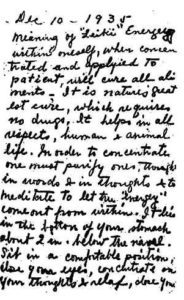 Dec 10 - 1935
Meaning of "Leiki" Energy
within oneself, when concen
trated and applyied to
patient, will cure all ali
ments - It is natures great
est cure, which requires
no drugs. It helps in all
respects, human & animal
life. In order to concentrate,
one must purify ones, thoughts
in words & in thoughts & to
meditate to let the "energy"
come out from within. It lies
in the bottom of your stomach
about 2 in. below the navel.
Sit in a comfortable position,
close your eyes, concentrate on
your thoughts & relax, close your